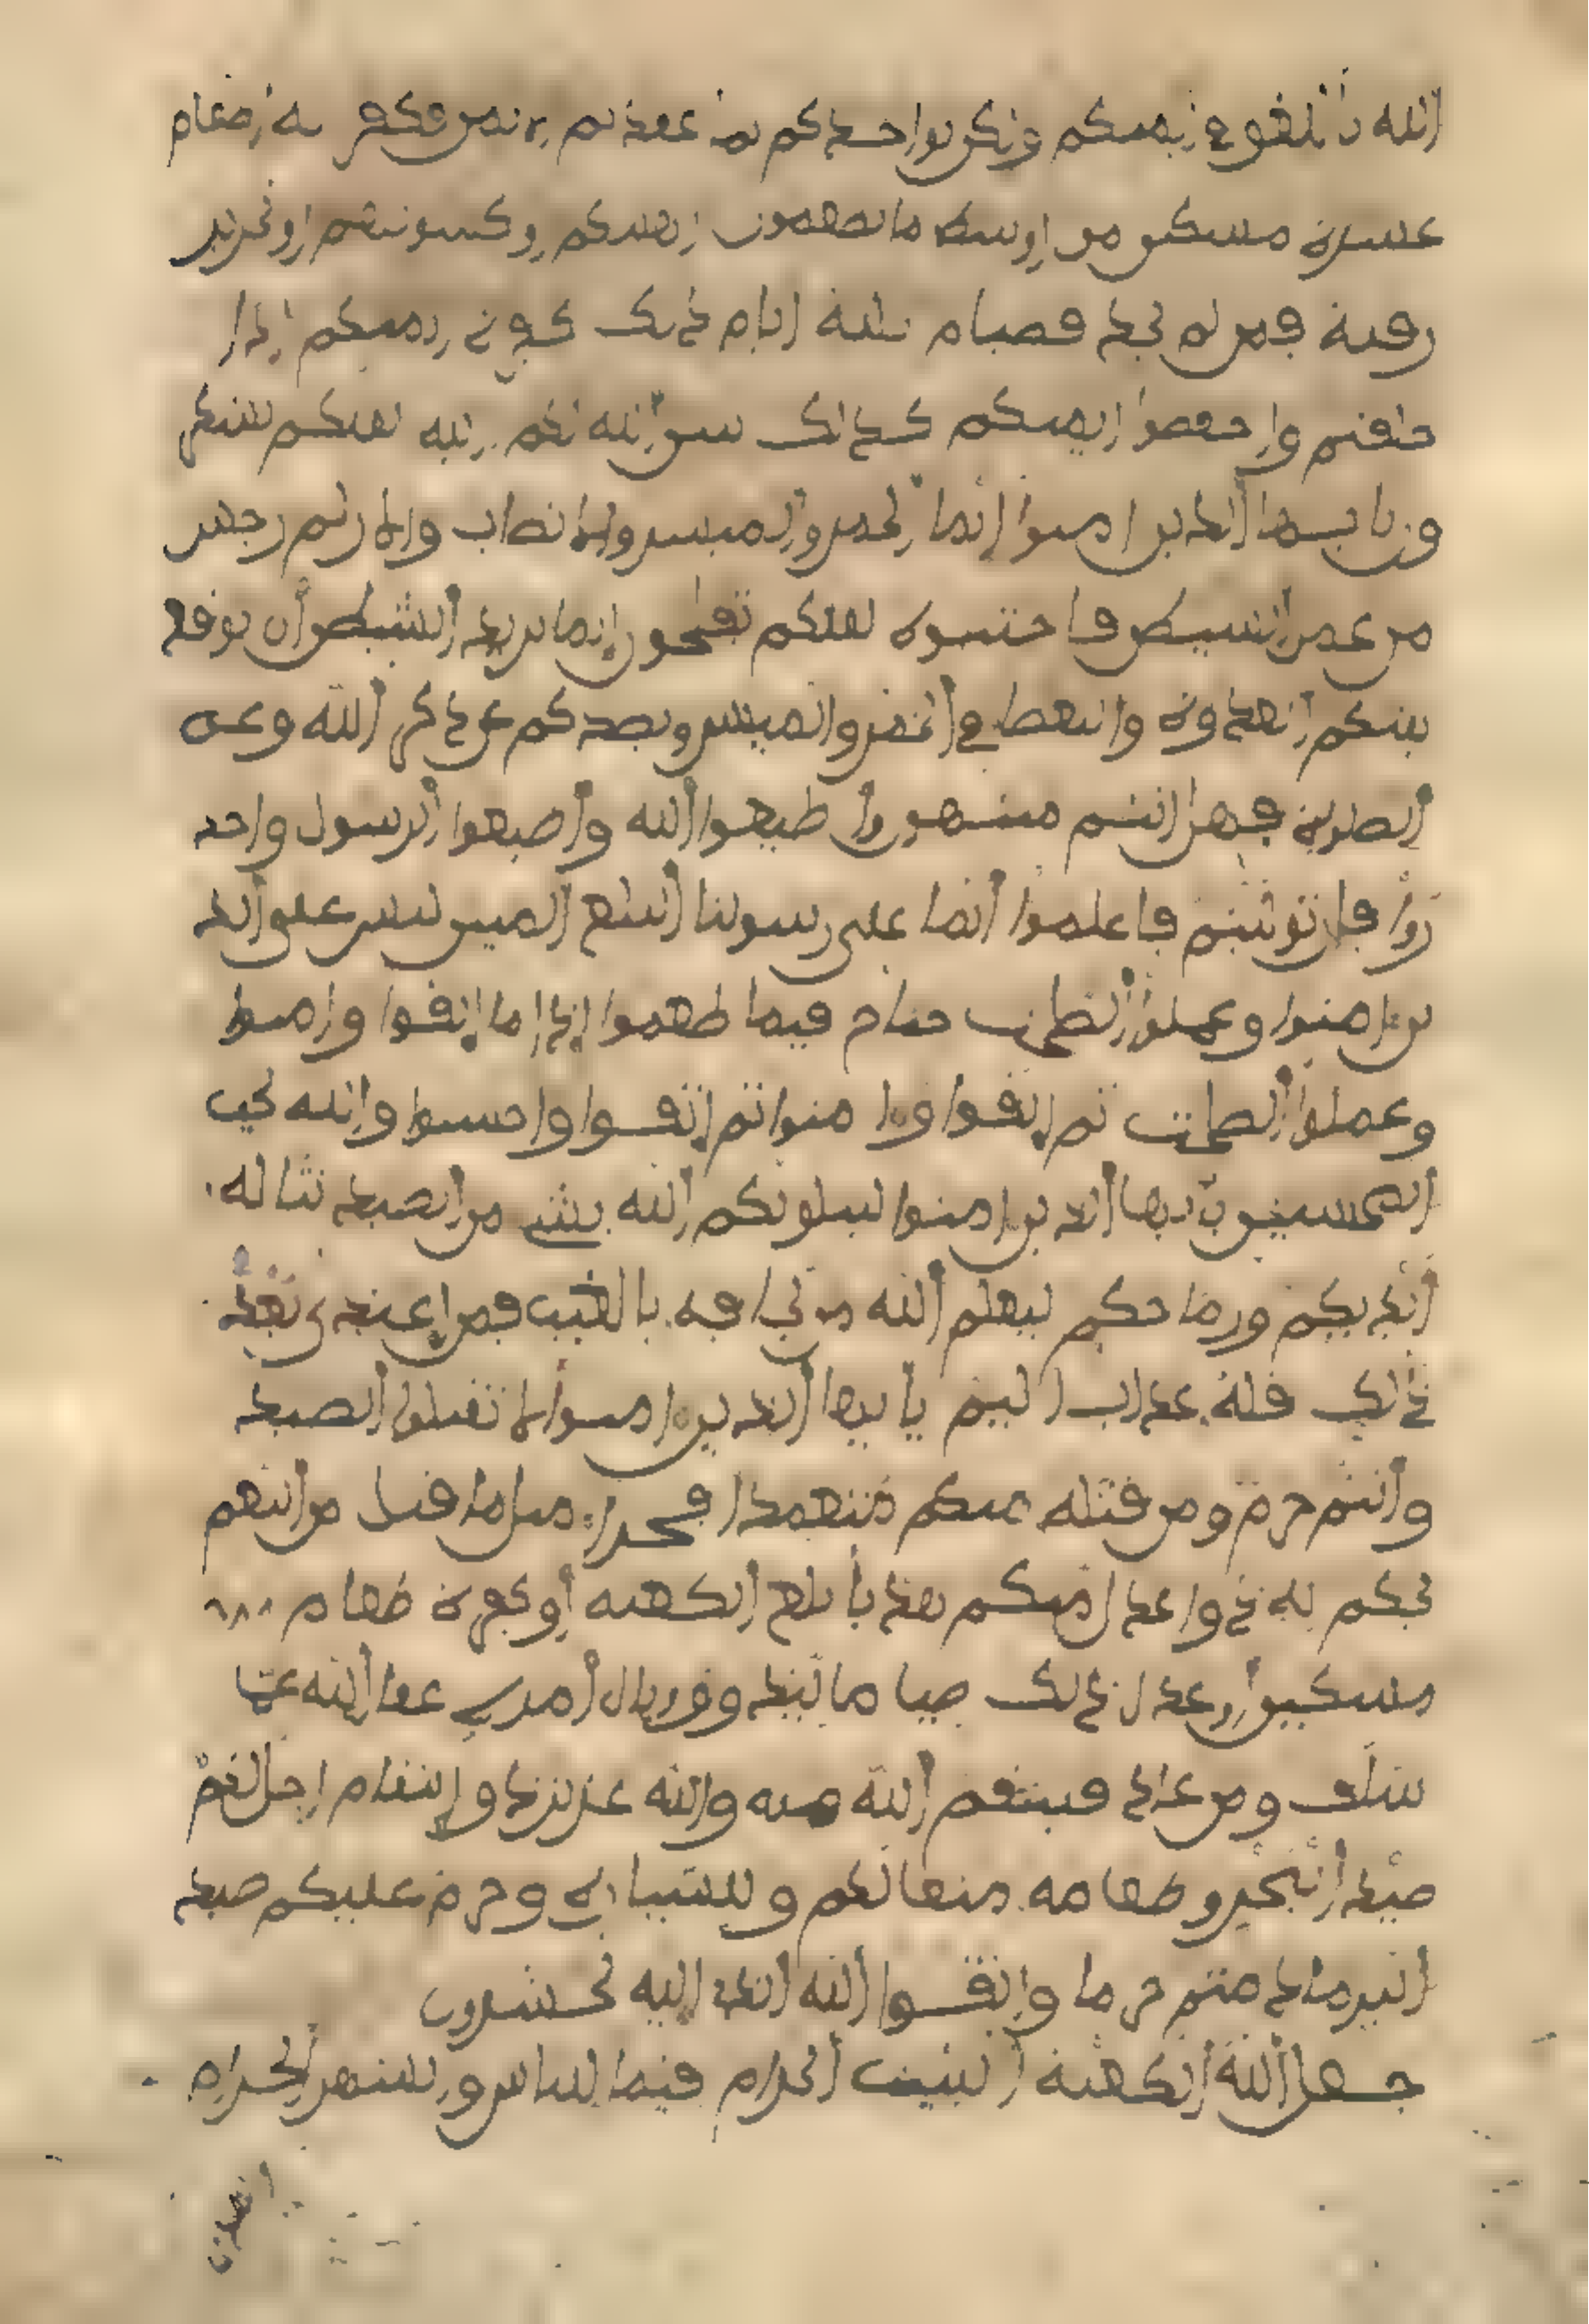 الله باللغو في أيمنكم ولكن يواخذكم بما عقدتم الايمن فكفرته إطعام
عشرة مسكين من اوسط ما تطعمون اهليكم او كسوتهم او تحرير
رقبة فمن لم يجد فصيام ثلثة ايام ذلك كفرة ايمنكم إذا
حلفتم واحفظوا ايمنكم كذلك يبين الله لكم ءايته لعلكم تشكر
ون يايها الذين ءامنوا إنما الخمر والميسر والانصاب والازلم رجس
من عمل الشيطن فاجتنبوه لعلكم تفلحون إنما يريد الشيطن أن يوقع
بينكم العدوة والبغضا في الخمر والميسر ويصدكم عن ذكر الله وعن
الصلوة فهل انتم منتهون وأطيعوا الله وأطيعوا الرسول واحذ
روا فإن توليتم فاعلموا أنما على رسولنا البلغ المبين ليس على الذ
ين ءامنوا وعملوا الصلحت جناح فيما طعموا إذا ما اتقوا وءامنوا
وعملوا الصلحت ثم اتقوا وءامنوا ثم اتقوا واحسنوا والله يحب
المحسنين يأيها الذين ءامنوا ليبلونكم الله بشيء من الصيد تناله
أيديكم ورماحكم ليعلم الله من يخافه بالغيب فمن إعتدى بعد
ذلك فله عذاب اليم يأيها الذين ءامنوا لا تقتلوا الصيد
وأنتم حرم ومن قتله منكم متعمدا فجزاء مثل ما قتل من النعم
يحكم به ذوا عدل منكم هديا بلغ الكعبة أو كفرة طعام
مسكين أو عدل ذلك صياما ليذوق وبال أمره عفا الله عما
سلف ومن عاد فينتقم الله منه والله عزيز ذو إنتقام احل لكم
صيد البحر وطعامه متعا لكم وللسيارة وحرم عليكم صيد
البر ما دمتم حرما واتقوا الله الذي إليه تحشرون
جعل الله الكعبة البيت الحرام قيما للناس والشهر الحرام